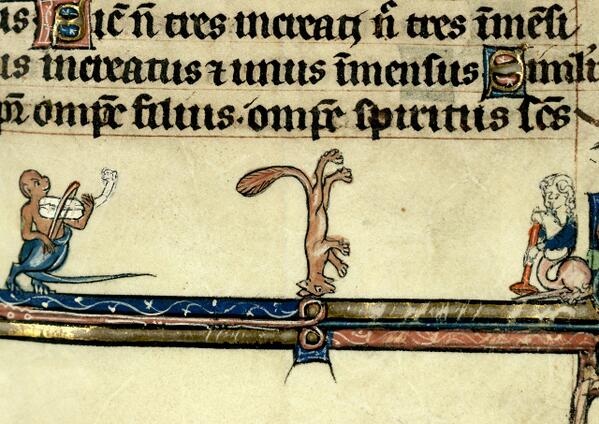 us Sic̄ n̄ tres increati n̄ tres īmēsi
us increatus ⁊ unus īmensus Simili
omp̄s filius · omp̄s spiritus sc̄s